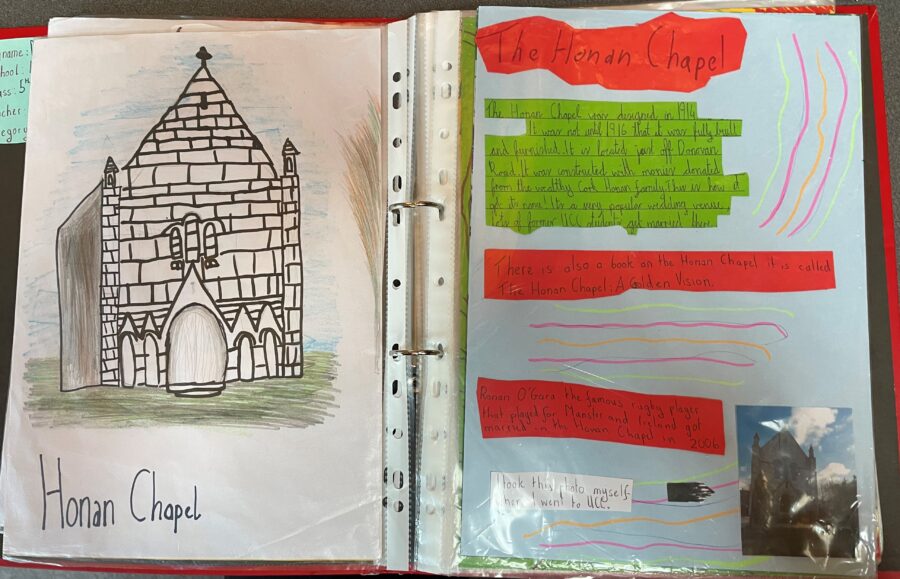 name:
chool:
ass: 5th
acher:
egory
Honan Chapel
The Honan Chapel
The Honan Chapel was designed in 1914
It was not until 1916 that it was fully built
and furnished. It is located just off Donovan
Road. It was constructed with monies donated
from the wealthy Cork Honan family. This is how it
got its name. It's a very popular wedding venue.
Lots of former UCC students get married there.
There is also a book on the Honan Chapel it is called
The Honan Chapel; A Golden Vision.
Ronan O'Gara the famous rugby player
that played for Munster and Ireland got
married in the Honan Chapel in 2006
I took this photo myself
when I went to UCC.